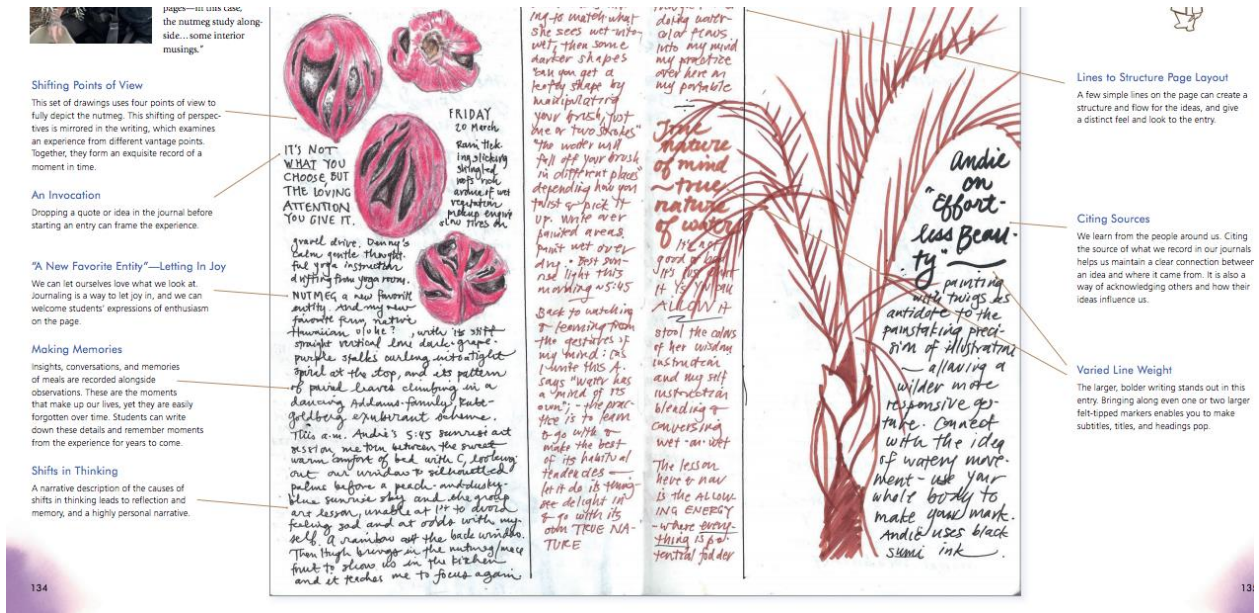 pages—in this case,
the nutmeg study along-
side…some interior
musings."
Shifting Points of View
This set of drawings uses four points of view to
fully depict the nutmeg. This shifting of perspec-
tives is mirrored in the writing, which examines
an experience from different vantage points.
Together, they form an exquisite record of a
moment in time.
An Invocation
Dropping a quote or idea in the journal before
starting an entry can frame the experience.
"A New Favorite Entity"—Letting In Joy
We can let ourselves love what we look at.
Journaling is a way to let joy in, and we can
welcome students' expressions of enthusiasm
on the page.
Making Memories
Insights, conversations, and memories
of meals are recorded alongside
observations. These are the moments
that make up our lives, yet they are easily
forgotten over time. Students can write
down these details and remember moments
from the experience for years to come.
Shifts in Thinking
A narrative description of the causes of
shifts in thinking leads to reflection and
memory, and a highly personal narrative.
134
FRIDAY
20 March
Rain tick-
ing slicking
shingled
roofs rich
aroma of wet
vegetation
pickup engine
slow tires on
IT'S NOT
WHAT YOU
CHOOSE, BUT
THE LOVING
ATTENTION
YOU GIVE IT.
gravel drive. Danny's
calm gentle thought-
ful yoga instruction
drifting from yoga room.
NUTMEG a new favorite
entity. And my new
favorite fern, native
Hawaiian , with its stiff
straight vertical lone dark-grape-
purple stalks curling into a tight
spiral at the top, and its pattern
of paired leaves climbing in a
dancing Addams-family, Rube-
goldberg, exuberant scheme.
This a.m. Andie's 5:45 sunrise art
session, me torn between the sweet
warm comfort of bed with C, looking
out our window to silhouetted
palms before a peach-and-dusky-
blue sunrise sky and the group
art lesson, unable at 1st to avoid
feeling sad and at odds with my-
self. A rainbow out the back window.
Then Hugh brings in the nutmeg/mace
fruit to show us in the kitchen
and it teaches me to focus again
ing to match what
she sees wet-into-
wet, then some
darker shapes
"can you get a
leafy shape by
manipulating
your brush, just
one or two strokes"
"the water will
fall off your brush
in different places"
depending how you
twist & pick it
up. write over
painted areas.
paint wet over
dry. Best sun-
rise light this
morning ~5:45
Back to watching
& learning from
the gestures of
my mind: (as
I write this A.
says "water has
a mind of its
own", - the prac-
tice is to learn
to go with &
make the best
of its habitual
tendencies —
let it do its thing
see delight in
& go with its
own TRUE NA-
TURE
doing water-
color flows
into my mind
my practice
over here on
my portable
True
nature
of mind
~ true
nature
of water
It's not
good or bad
it's just what
it is you
ALLOW it
steal the colors
of her wisdom
instruction
and my self
instruction
blending &
conversing
wet-on-wet
The lesson
here & now
is the ALLOW-
ING ENERGY
- where every-
thing is po-
tential fodder
Andie
on
"Effort-
less Beau-
ty"
painting
with twigs as
antidote to the
painstaking preci-
sion of illustration
— allowing a
wilder more
responsive ges-
ture. Connect
with the idea
of watery move-
ment - use your
whole body to
make your mark.
Andie uses black
sumi ink.
Lines to Structure Page Layout
A few simple lines on the page can create a
structure and flow for the ideas, and give
a distinct feel and look to the entry.
Citing Sources
We learn from the people around us. Citing
the source of what we record in our journals
helps us maintain a clear connection between
an idea and where it came from. It is also a
way of acknowledging others and how their
ideas influence us.
Varied Line Weight
The larger, bolder writing stands out in this
entry. Bringing along even one or two larger
felt-tipped markers enables you to make
subtitles, titles, and headings pop.